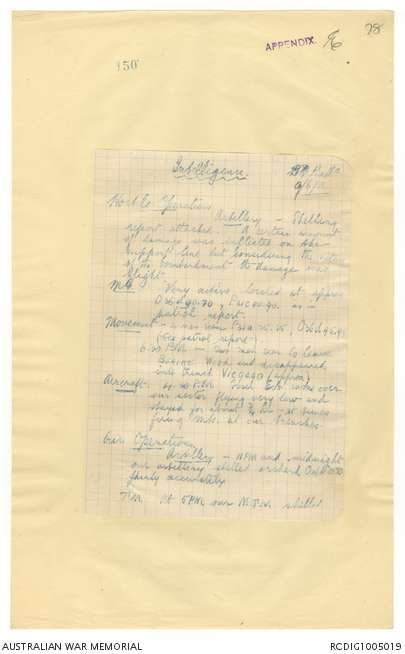 78
APPENDIX. E
150
Intelligence.
Hostile Operations
Artillery - Shelling
report attached. A certain amount
of damage was inflicted on the
support line but considering the
of the bombardment the damage was
slight.
M.G. Very active, located at approx
as in
patrol report.
Movement - 2 men seen
(See patrol report).
P.M. - Two men seen to leave
Wood and disappeared
into trench
Aircraft. P.M. E.A. came over
our sector flying very low and
stayed for about ½ hr - at times
firing M.G. at our trenches.
Our Operations
Artillery - 11 PM and midnight
our artillery shelled orchard
fairly accurately
T.M. At 5 PM our M.T.M. shelled
AUSTRALIAN WAR MEMORIAL
RCDIG1005019